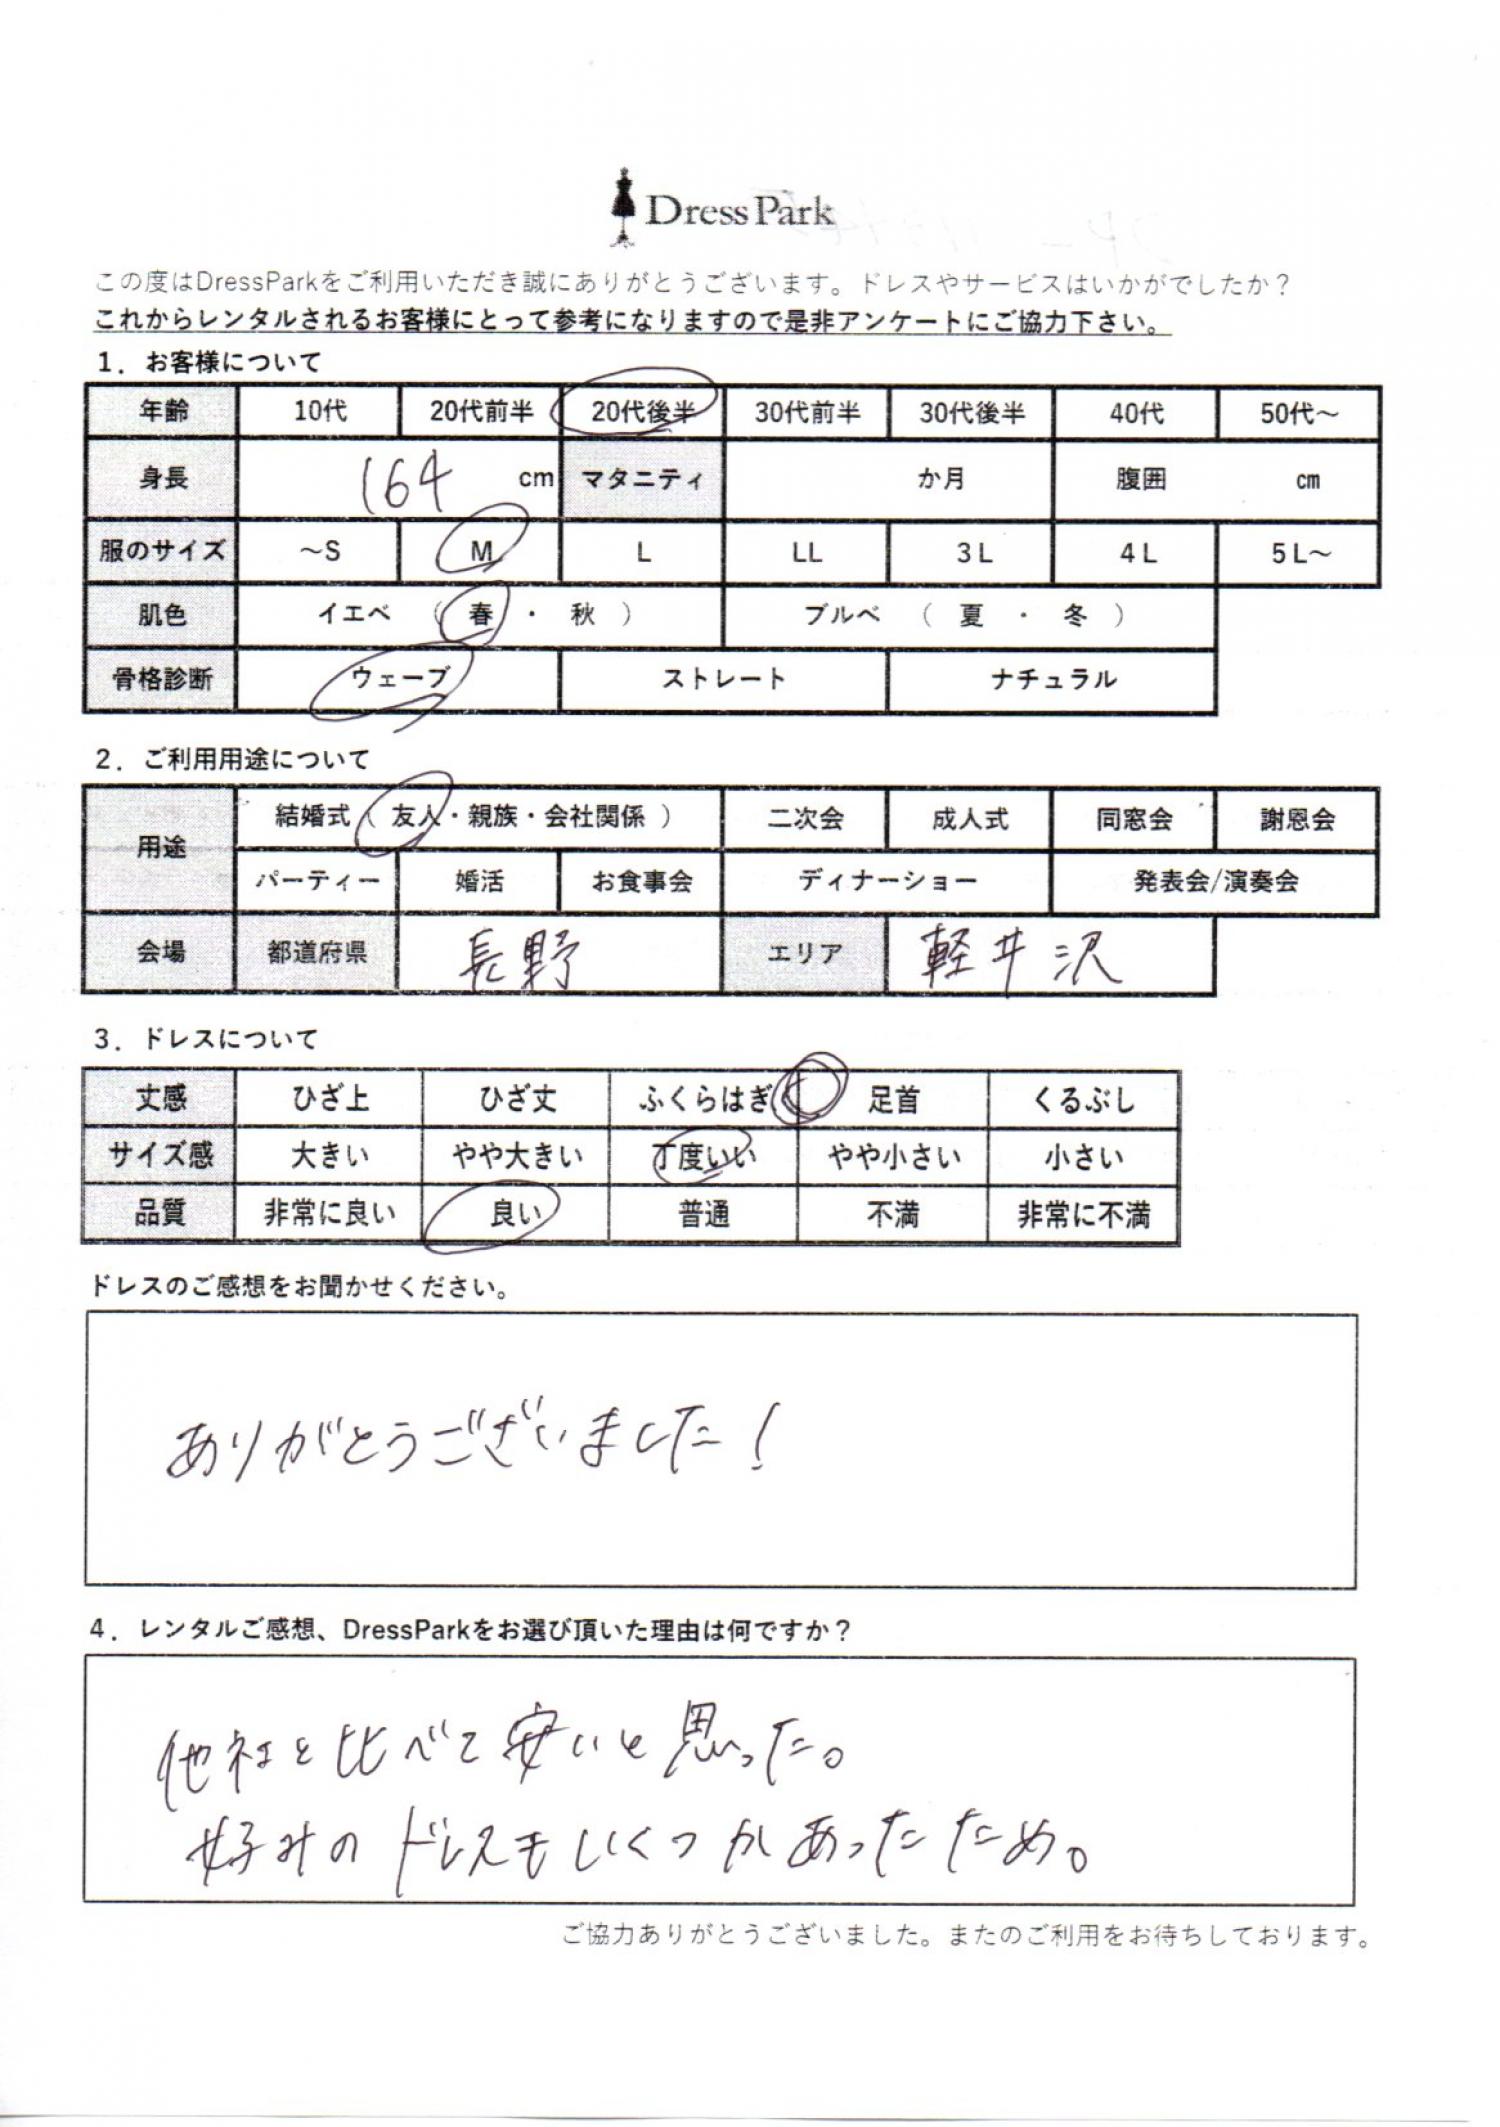 Dress Park
この度はDressParkをご利用いただき誠にありがとうございます。ドレスやサービスはいかがでしたか？
これからレンタルされるお客様にとって参考になりますので是非アンケートにご協力下さい。
1．お客様について
年齢 10代 20代前半 20代後半 30代前半 30代後半 40代 50代～
身長 164 cm マタニティ か月 腹囲 cm
服のサイズ ～S M L LL 3L 4L 5L～
肌色 イエベ （ 春 ・ 秋 ） ブルベ （ 夏 ・ 冬 ）
骨格診断 ウェーブ ストレート ナチュラル
2．ご利用用途について
用途 結婚式（ 友人・親族・会社関係 ） 二次会 成人式 同窓会 謝恩会
パーティー 婚活 お食事会 ディナーショー 発表会/演奏会
会場 都道府県 長野 エリア 軽井沢
3．ドレスについて
丈感 ひざ上 ひざ丈 ふくらはぎ 足首 くるぶし
サイズ感 大きい やや大きい 丁度いい やや小さい 小さい
品質 非常に良い 良い 普通 不満 非常に不満
ドレスのご感想をお聞かせください。
ありがとうございました！
4．レンタルご感想、DressParkをお選び頂いた理由は何ですか？
他社と比べて安いと思った。
好みのドレスもいくつかあったため。
ご協力ありがとうございました。またのご利用をお待ちしております。